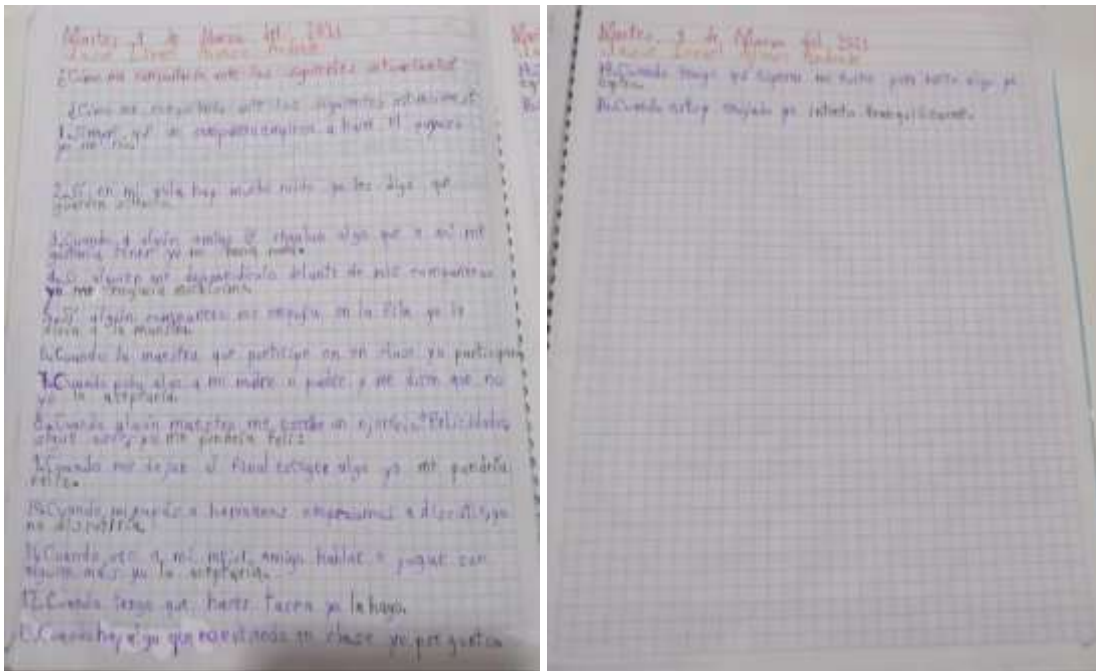 Martes, 9 de Marzo del 2021
¿Cómo me comportaría ante las siguientes situaciones?
¿Cómo me comportaría ante las siguientes
1. que un compañero empieza a hacer el payaso
yo me río.
2. Si en mi aula hay mucho ruido yo les digo que
guarden silencio.
3. Cuando a algún amigo le regalan algo que a mí me
gustaría tener yo no haría nada.
4. Si alguien me delante de mis compañeros
yo me
5. Si algún compañero me empuja en la fila yo le
diría a la maestra.
6. Cuando la maestra que participe en clase yo participo
7. Cuando pido algo a mi madre o padre y me dicen que no
yo lo aceptaría.
8. Cuando algún maestro me escribe un ejercicio "Felicidades
sigue así", yo me pondría feliz
9. Cuando me dejan al final algo yo me pondría
feliz.
10. Cuando mi o hermanos empezamos a discutir, yo
no discutiría.
11. Cuando veo a mi mejor amigo hablar o jugar con
alguien más yo lo aceptaría.
12. Cuando tengo que hacer tarea yo la hago.
13. Cuando hay algo que no entiendo en clase yo pregunto
Martes, 9 de Marzo del 2021
14. Cuando tengo que esperar mi turno para hacer algo yo
espero.
15. Cuando estoy enojado yo intento tranquilizarme.